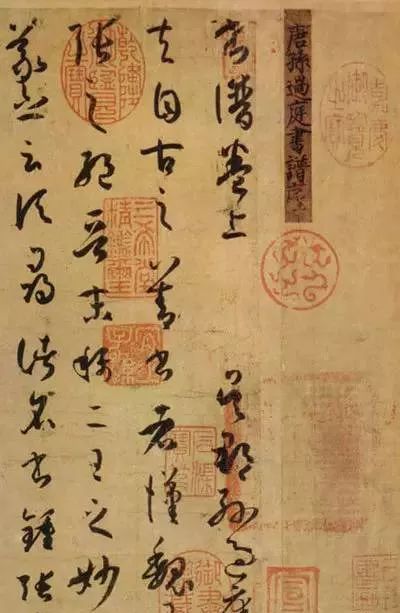 唐孫過庭書譜序
書譜卷上 吳郡孫過庭
夫自古之善書者漢魏
張之絕晉末稱二王之妙
羲之云頃尋諸名書鍾張
三希堂精鑑璽
宜子孫